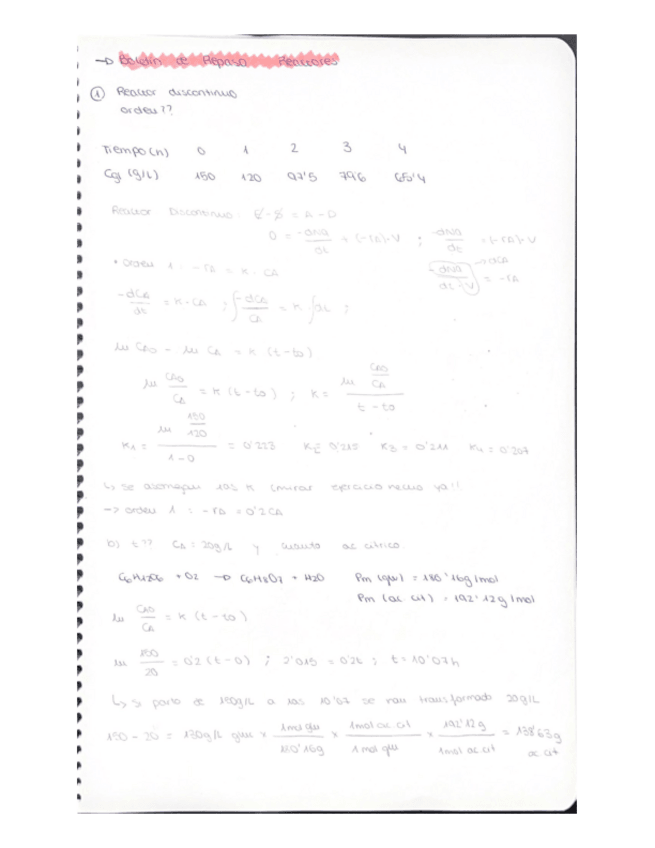 → Boletín de Repaso Reactores
① Reactor discontinuo
orden??
Tiempo (h) 0 1 2 3 4
Cgl (g/L) 150 120 97'5 79'6 65'4
Reactor Discontinuo: E - S = A - D
0 = -dNA/dt + (-rA)·V ; -dNA/dt = (-rA)·V
• Orden 1 : -rA = K · CA
-dNA/dt·V = -rA → dCA
-dCA/dt = K·CA ; ∫-dCA/CA = K ∫dt ;
ln CAO - ln CA = K (t-to)
ln CAO/CA = K (t-to) ; K = ln CAO/CA / t-to
K1 = ln 150/120 / 1-0 = 0'223 K2 = 0'215 K3 = 0'211 K4 = 0'207
↳ se asemejan las K (mirar ejercicio hecho ya!!
→ orden 1 : -rA = 0'2CA
b) t?? CA = 20g/L y cuanto ac cítrico.
C6H12O6 + O2 → C6H8O7 + H2O Pm (glu) = 180'16g/mol
Pm (ac cit) = 192'12g/mol
ln CAO/CA = K (t-to)
ln 150/20 = 0'2 (t-0) ; 2'015 = 0'2t ; t = 10'07h
↳ si parto de 150g/L a las 10'07 se han transformado 20g/L
150 - 20 = 130g/L gluc x 1mol glu/180'16g x 1mol ac.cit/1 mol glu x 192'12g/1mol ac cit = 138'63g ac cit